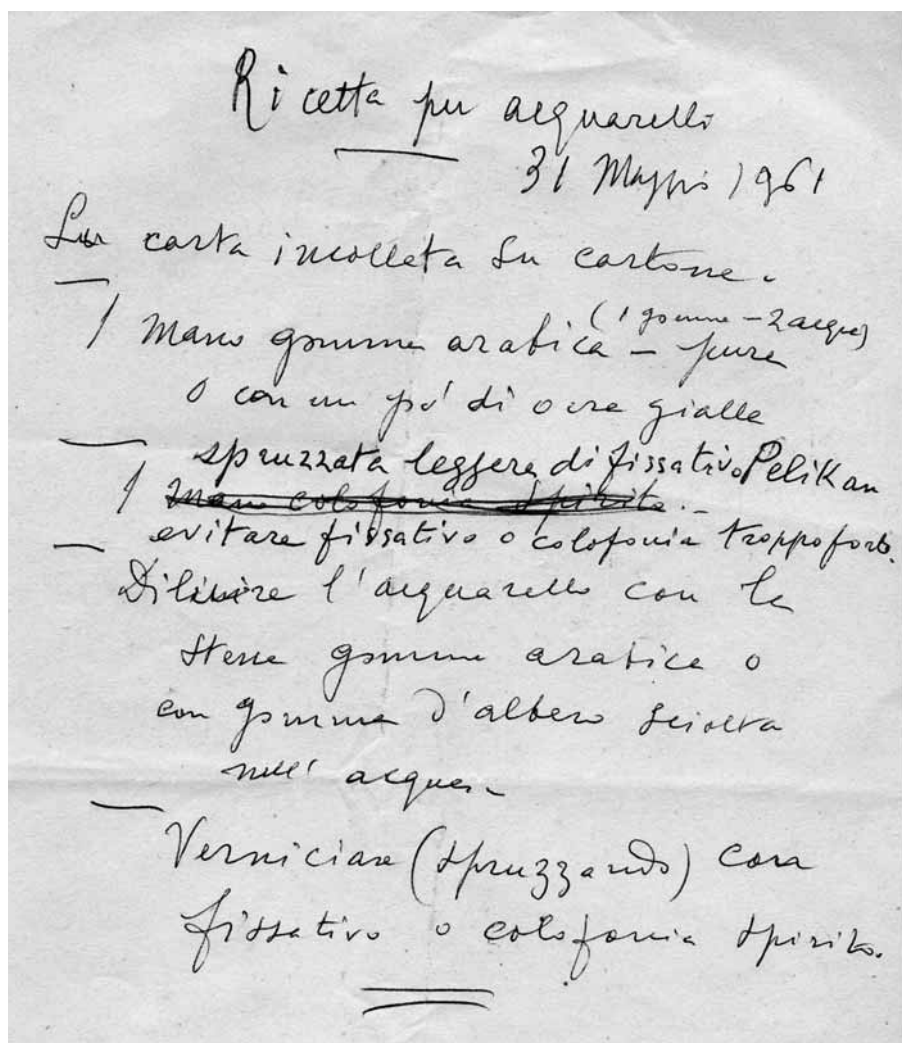 Ricetta per acquarello
31 Maggio 1961
Su carta incollata su cartone.
(1 gomma - 2 acqua)
1 mano gomma arabica - pura
o con un pó di ocra gialla
spruzzata leggera di fissativo Pelikan
1 mano colofonia spirito.-
evitare fissativo o colofonia troppo forte.
Diluire l'acquarello con la
stessa gomma arabica o
con gomma d'albero sciolta
nell'acqua.-
Verniciare (spruzzando) cera
fissativo o colofonia spirito.